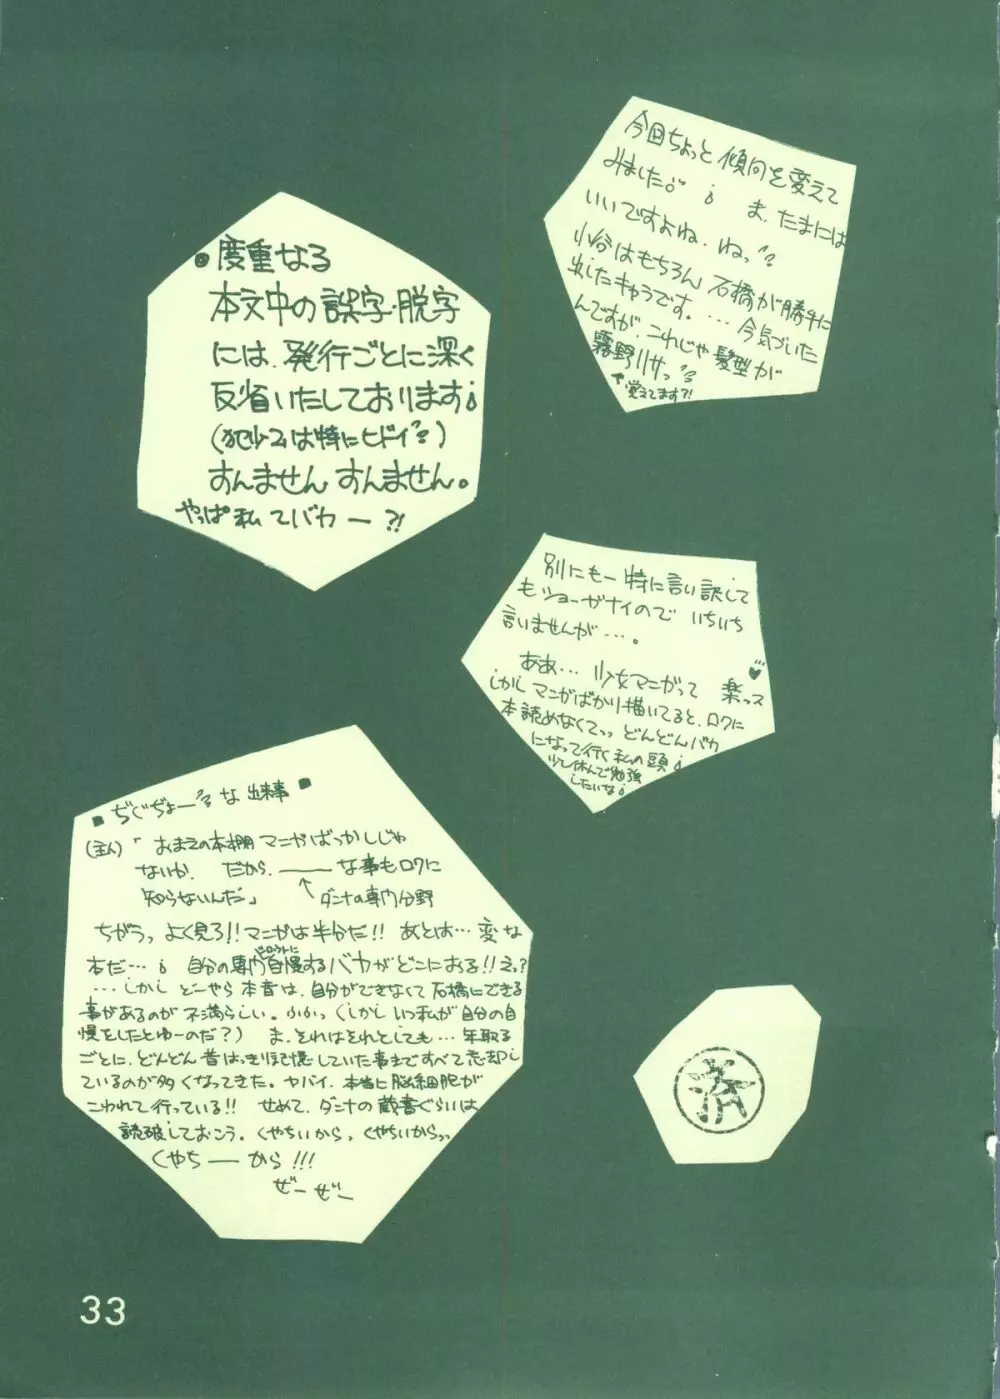 今回ちょっと傾向を変えて
みました。 ま、たまには
いいですよね、ねっ
小谷はもちろん 石橋が勝手に
出したキャラです。… 今気づいた
んですが、これじゃ髪型が
霧野リサっ
↑覚えてます?!
◎度重なる
本文中の誤字・脱字
には、発行ごとに深く
反省いたしております
は特にヒドイ
すんません すんません。
やっぱ私てバカー?!
別にもー特に言い訳して
もショーがナイので いちいち
言いませんが…。
ああ… 少女マンガって 楽っス♥
しかしマンガばかり描いてると、ロクに
本読めなくてっっ どんどんバカ
になって行く私の頭
少し休んで勉強
したいな
■ぢぐぢょーな出来事■
(主人)「おまえの本棚マンガばっかしじゃ
ないか、 だから、――な事もロクに
知らないんだ」 ↑ダンナの専門分野
ちがうっ よく見ろ!!マンガは半分だ!! あとは… 変な
本だ… 自分の専門自慢するバカがどこにおる!!えっ?
…しかし どーやら本音は、自分ができなくて石橋にできる
事があるのが不満らしい。ふふっ(しかしいつ私が自分の自
慢をしたとゆーのだ?) ま、それはそれとしても… 年取る
ごとに、どんどん昔はっきり記憶していた事まですべて忘却し
ているのが多くなってきた。ヤバイ、本当に脳細胞が
こわれて行っている!! せめて、ダンナの蔵書ぐらいは
読破しておこう。くやちいから、くやちいからっっ
くやちーから!!!
ぜーぜー
済
33